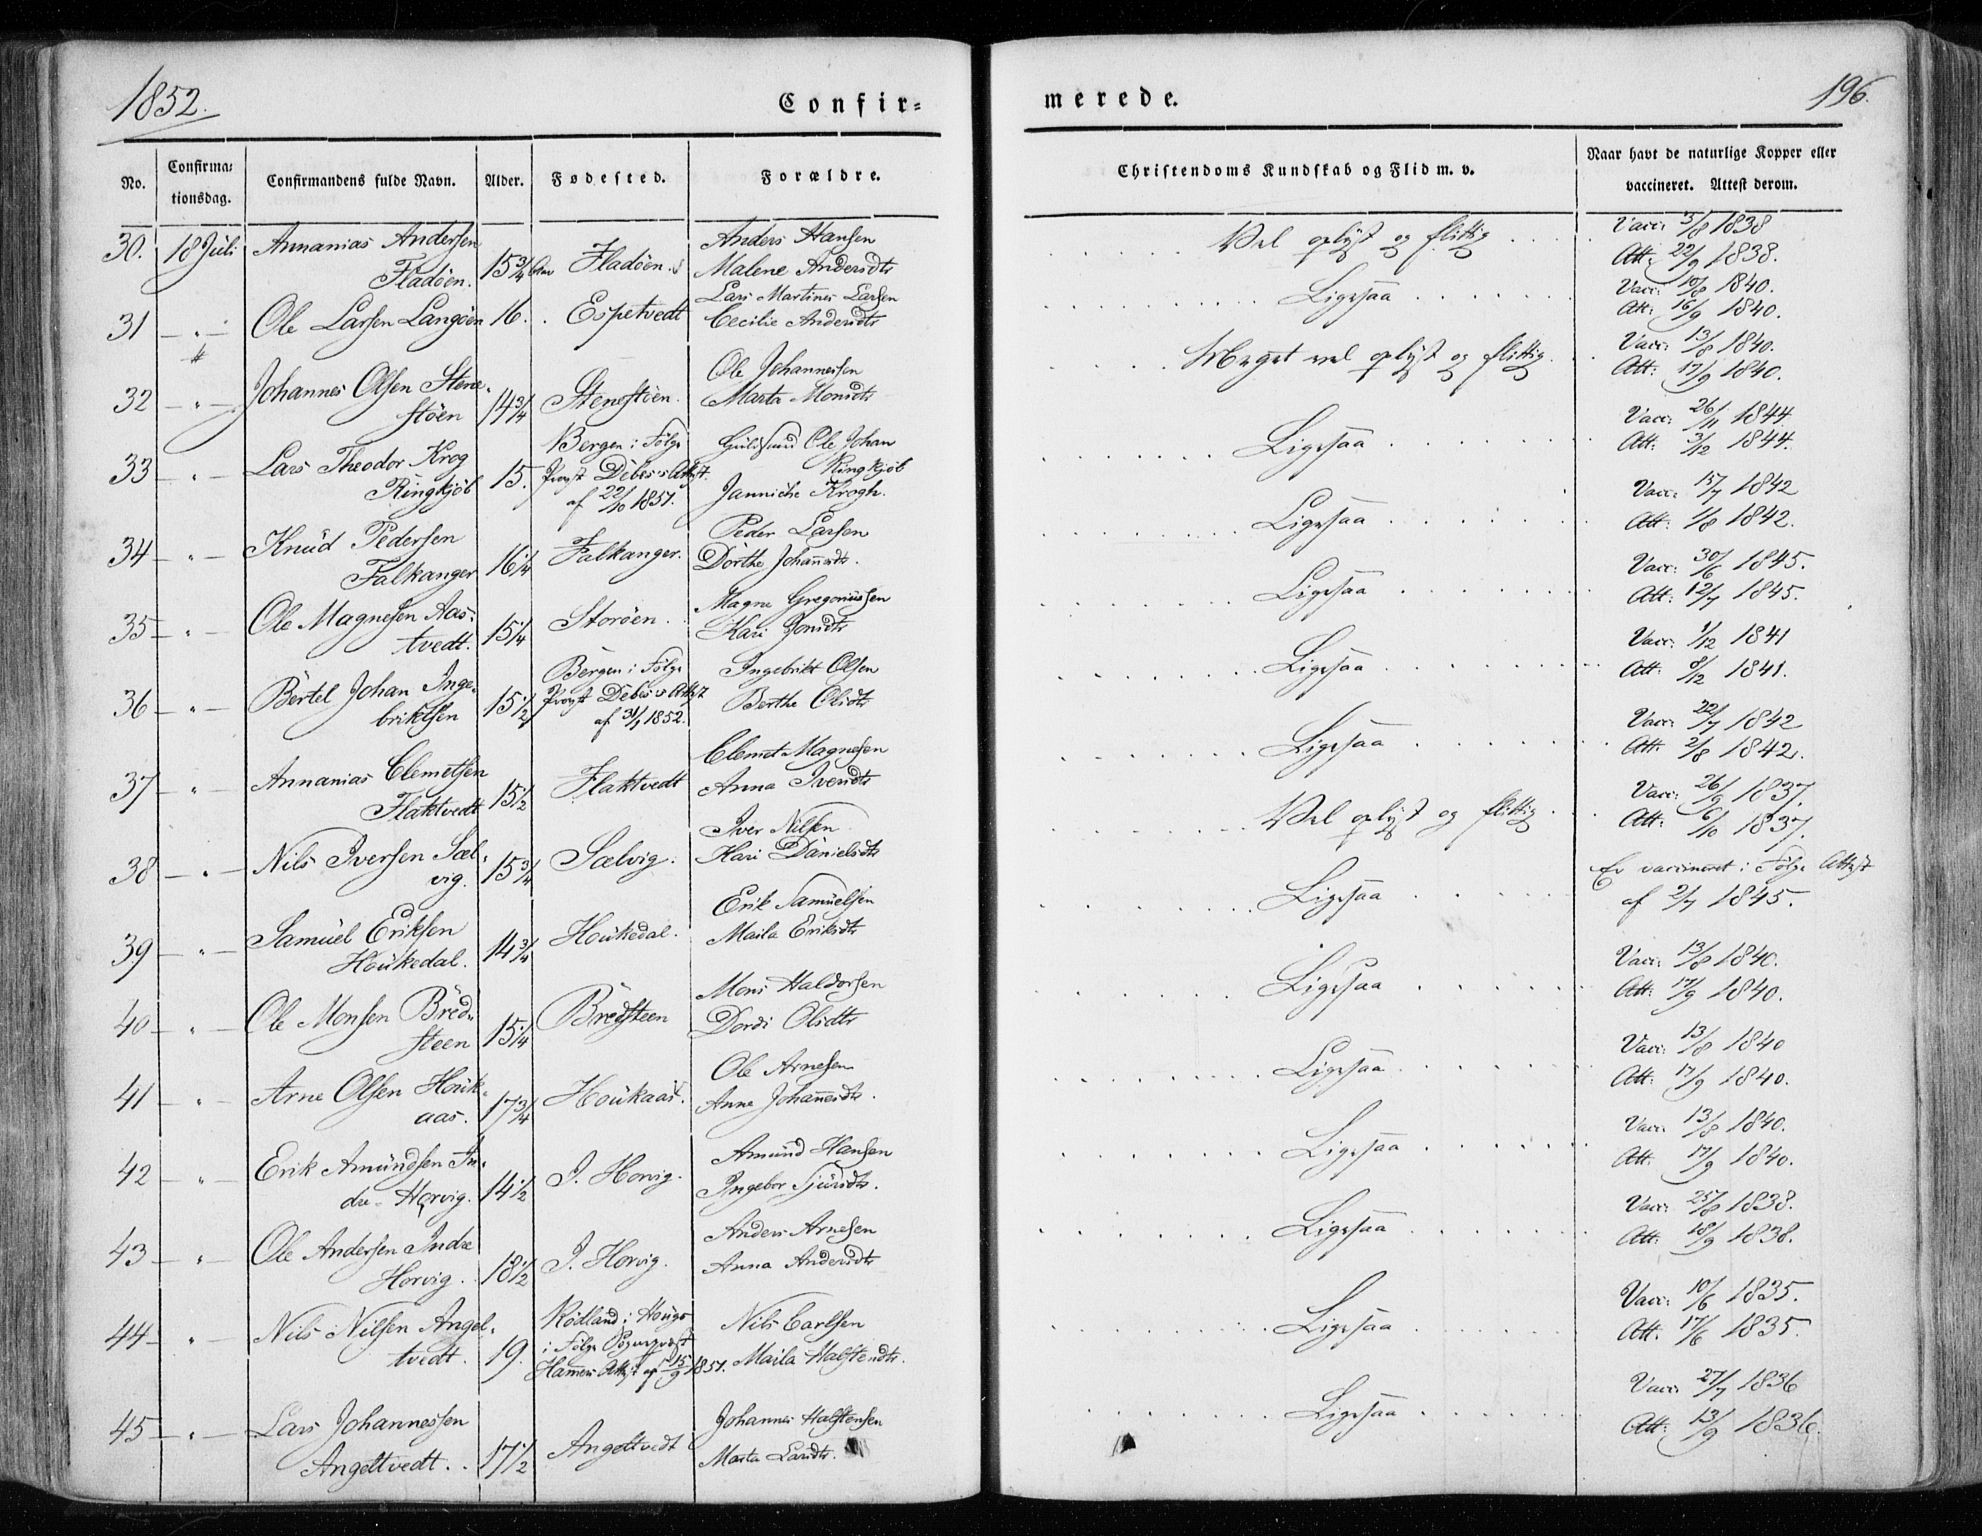 1852.
Confir-
No.
Confirma-
tionsdag.
Confirmandens fulde Navn.
Alder.
Fødested.
Forældre.
30. 18 Juli Annanias Andersen 15 3/4 Fladöen. Anders Hansen
Fladöen. Malene Andersdtr
31 - " - Ole Larsen Langöen 16. Espetvedt Lars Martines Larsen
Cecilie Andersdtr
32 - " - Johannes Olsen Stene- 14 3/4 Stenestöen. Ole Johannessen
stöen Marta Monsdtr
33 - " - Lars Theodor Krog 15. Bergen i Følge Guldsmed Ole Johan
Ringkjöb Provst Debes's Attest Ringkjöb
af 22/10 1851. Janniche Krogh.
34 - " - Knud Pedersen 16 1/4 Falkanger. Peder Larsen
Falkanger Dorthe Johannsdtr.
35 - " - Ole Magnesen Aas- 15 1/4 Storöen. Magne Gregoriussen
tvedt. Kari Jonsdtr
36 - " - Bertel Johan Inge- 15 1/2 Bergen i Følge Ingebrikt Olsen
briktsen Provst Debes's Attest Berthe Olsdtr
af 31/1 1852.
37 - " - Annanias Clemetsen 15 1/2 Flaktvedt Clemet Magnesen
Flaktvedt Anna Iversdtr
38 - " - Nils Iversen Sæl- 15 3/4 Sælvig. Iver Nilsen
vig. Kari Danielsdtr
39 - " - Samüel Eriksen 14 3/4 Houkedal. Erik Samüelsen
Houkedal. Maila Eriksdtr
40 - " - Ole Monsen Bred- 15 1/4 Bredsteen Mons Haldorsen
steen Dordi Olsdtr
41 - " - Arne Olsen Houk- 17 3/4 Houkaas. Ole Arnesen
aas. Anne Johannesdtr.
42 - " - Erik Amundsen In- 14 1/2 I. Horvig. Amund Hansen
dre Horvig. Ingebor Sjursdtr.
43 - " - Ole Andersen Indre 18 1/2 I. Horvig. Anders Arnesen
Horvig. Anna Andersdtr
44 - " - Nils Nilsen Angel- 19. Rödland i Hougs Nils Carlsen
tvedt. i Følge Attest af 15/9 1851. Maila Halstendtr.
45 - " - Lars Johannessen 17 1/2 Angeltvedt Johannes Halstensen
Angeltvedt. Marta Larsdtr.
merede.
196.
Christendoms Kundskab og Flid m. v.
Naar havt de naturlige Kopper eller
vaccineret. Attest derom.
Vel oplyst og flittig Vacc: 5/8 1838
Att: 22/9 1838.
Ligesaa Vacc: 10/8 1840.
Att: 16/9 1840.
Meget vel oplyst og flittig. Vacc: 13/8 1840.
Att: 17/9 1840.
Ligesaa Vacc: 26/11 1844.
Att: 3/12 1844.
Ligesaa Vacc: 15/7 1842
Att: 1/8 1842.
Ligesaa Vacc: 30/6 1845.
Att: 12/7 1845.
Ligesaa Vacc: 1/12 1841
Att: 8/12 1841.
Ligesaa Vacc: 22/7 1842
Att: 2/8 1842.
Vel oplyst og flittig Vacc: 26/9 1837.
Att: 6/10 1837.
Ligesaa Er vaccineret i Følge Attest
af 2/7 1845.
Ligesaa Vacc: 13/8 1840.
Att: 17/9 1840.
Ligesaa Vacc: 13/8 1840
Att: 17/9 1840.
Ligesaa Vacc: 13/8 1840.
Att: 17/9 1840.
Ligesaa Vacc: 25/8 1838.
Att: 18/9 1838.
Ligesaa Vacc: 10/6 1835.
Att: 17/6 1835.
Ligesaa Vacc: 27/7 1836
Att: 13/9 1836.